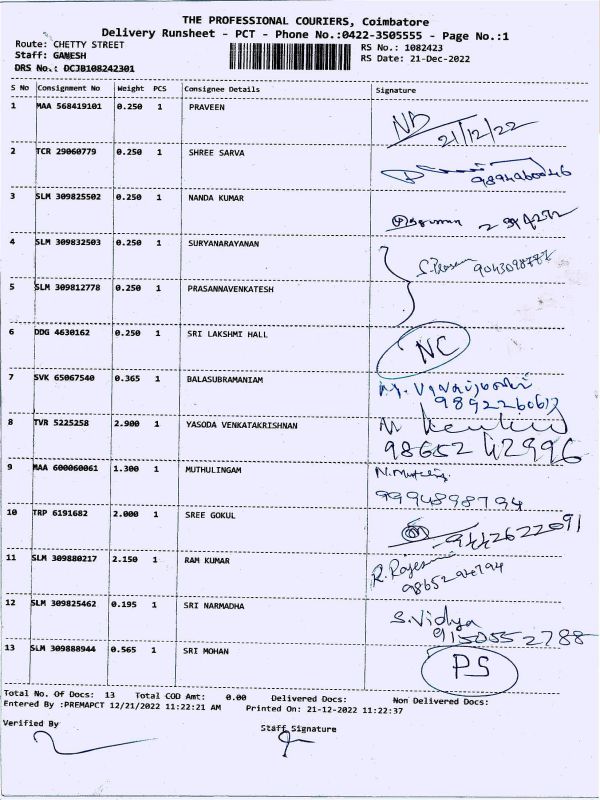 THE PROFESSIONAL COURIERS, Coimbatore
Delivery Runsheet - PCT - Phone No.:0422-3505555 - Page No.:1
Route: CHETTY STREET RS No.: 1082423
Staff: GANESH RS Date: 21-Dec-2022
DRS No.: DCJB108242301
S No Consignment No Weight PCS Consignee Details Signature
1 MAA 568419101 0.250 1 PRAVEEN
21/12/22
2 TCR 29060779 0.250 1 SHREE SARVA
3 SLM 309825502 0.250 1 NANDA KUMAR
4 SLM 309832503 0.250 1 SURYANARAYANAN
5 SLM 309812778 0.250 1 PRASANNAVENKATESH
6 DDG 4630162 0.250 1 SRI LAKSHMI HALL NC
7 SVK 65067540 0.365 1 BALASUBRAMANIAM
8 TVR 5225258 2.900 1 YASODA VENKATAKRISHNAN
98652 42996
9 MAA 600060061 1.300 1 MUTHULINGAM
9994898794
10 TRP 6191682 2.000 1 SREE GOKUL 9442622091
11 SLM 309880217 2.150 1 RAM KUMAR
12 SLM 309825462 0.195 1 SRI NARMADHA S. Vidya
9150552788
13 SLM 309888944 0.565 1 SRI MOHAN PS
Total No. Of Docs: 13 Total COD Amt: 0.00 Delivered Docs: Non Delivered Docs:
Entered By :PREMAPCT 12/21/2022 11:22:21 AM Printed On: 21-12-2022 11:22:37
Verified By Staff Signature